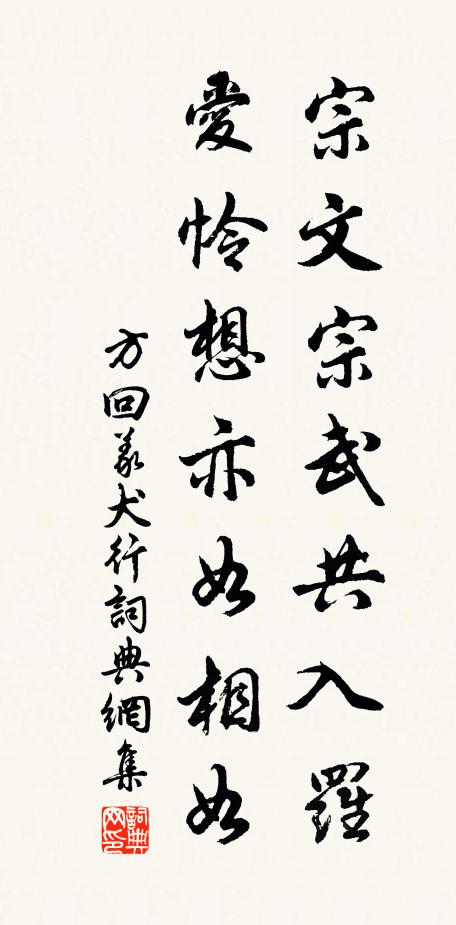 宗文宗武共入羅
愛憐想亦如相如
方回義犬行詞典網集
詞典網印